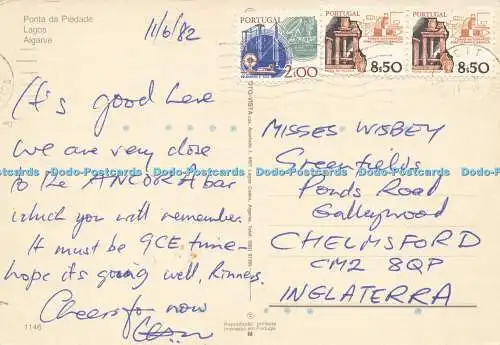 Ponta da Piedade
Lagos
Algarve
11/6/82
It's good here
we are very close
to the ANCORA bar
which you will remember.
It must be GCE time -
hope it's going well,
Cheers for now
1146
PORTUGAL
2.00
PORTUGAL
8$50
PORTUGAL
8$50
MISSES WISBEY
Greenfields
Ponds Road
Galleywood
CHELMSFORD
CM2 8QP
INGLATERRA
Dodo-Postcards Dodo-Postcards Dodo-Postcards Dodo-Postcards
Dodo-Postcards Dodo-Postcards Dodo-Postcards Dodo-Postcards